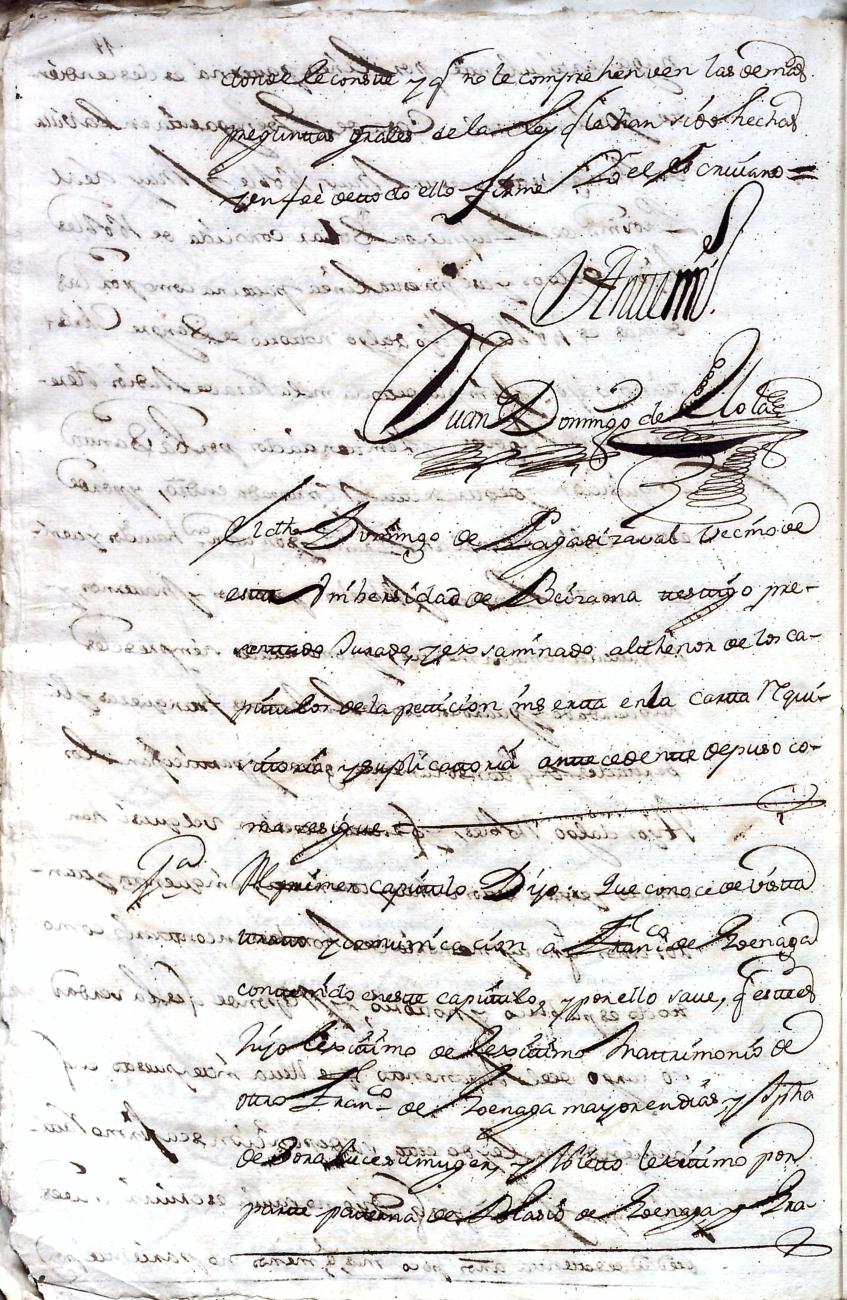 donde le conste y q̃ no le comprehenden las demas
preguntas grãles de la Ley q̃ le han sido hechas
y en feé de todo ello firmé Yo el esCriuano =
Antemi
Juan Domingo de
El dho Domingo de Lagadizaval vecino de
esta Vnibersidad de Beizama testigo pre-
sentado Jurado, y exsaminado althenor de los ca-
pitulos de la peticion inserta en la carta Rqui-
sitoria, y suplicattoria antecedente depuso co-
mo se sigue
Pa Al primer capitulo Dijo. Que conoce de vista
tratto y comunicacion a Franco de Zoenaga
contenido en este capitulo, y por ello saue, q̃ este es
hijo lexitimo de lexitimo Mattrimonio de
ottro Franco de Zoenaga mayor en dias, y
de su muger, y Nietto lexitimo por
parte patterna de de Zoenaga y Gra-